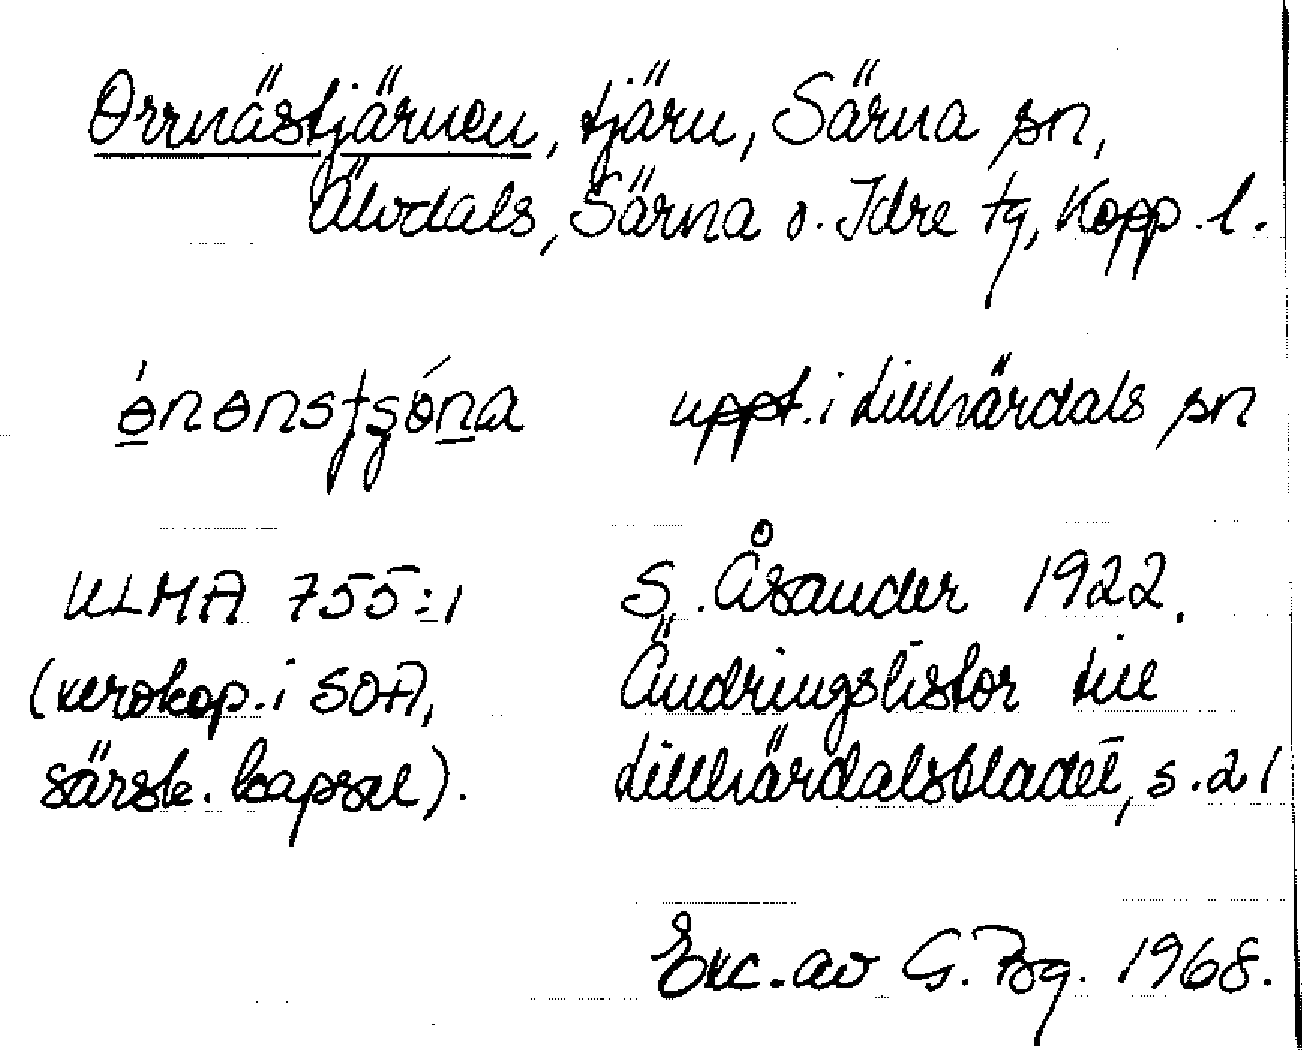 Orrnästjärnen, tjärn, Särna sn,
Älvdals, Särna o. Idre tg, Kopp. l.
uppt. i Lillhärdals sn
ULMA 755:1 S. Åsander 1922.
(xerokop. i SOA, Ändringslistor till
särsk. kapsel). Lillhärdalsbladet, s. 21
Exc. av G. Bg. 1968.